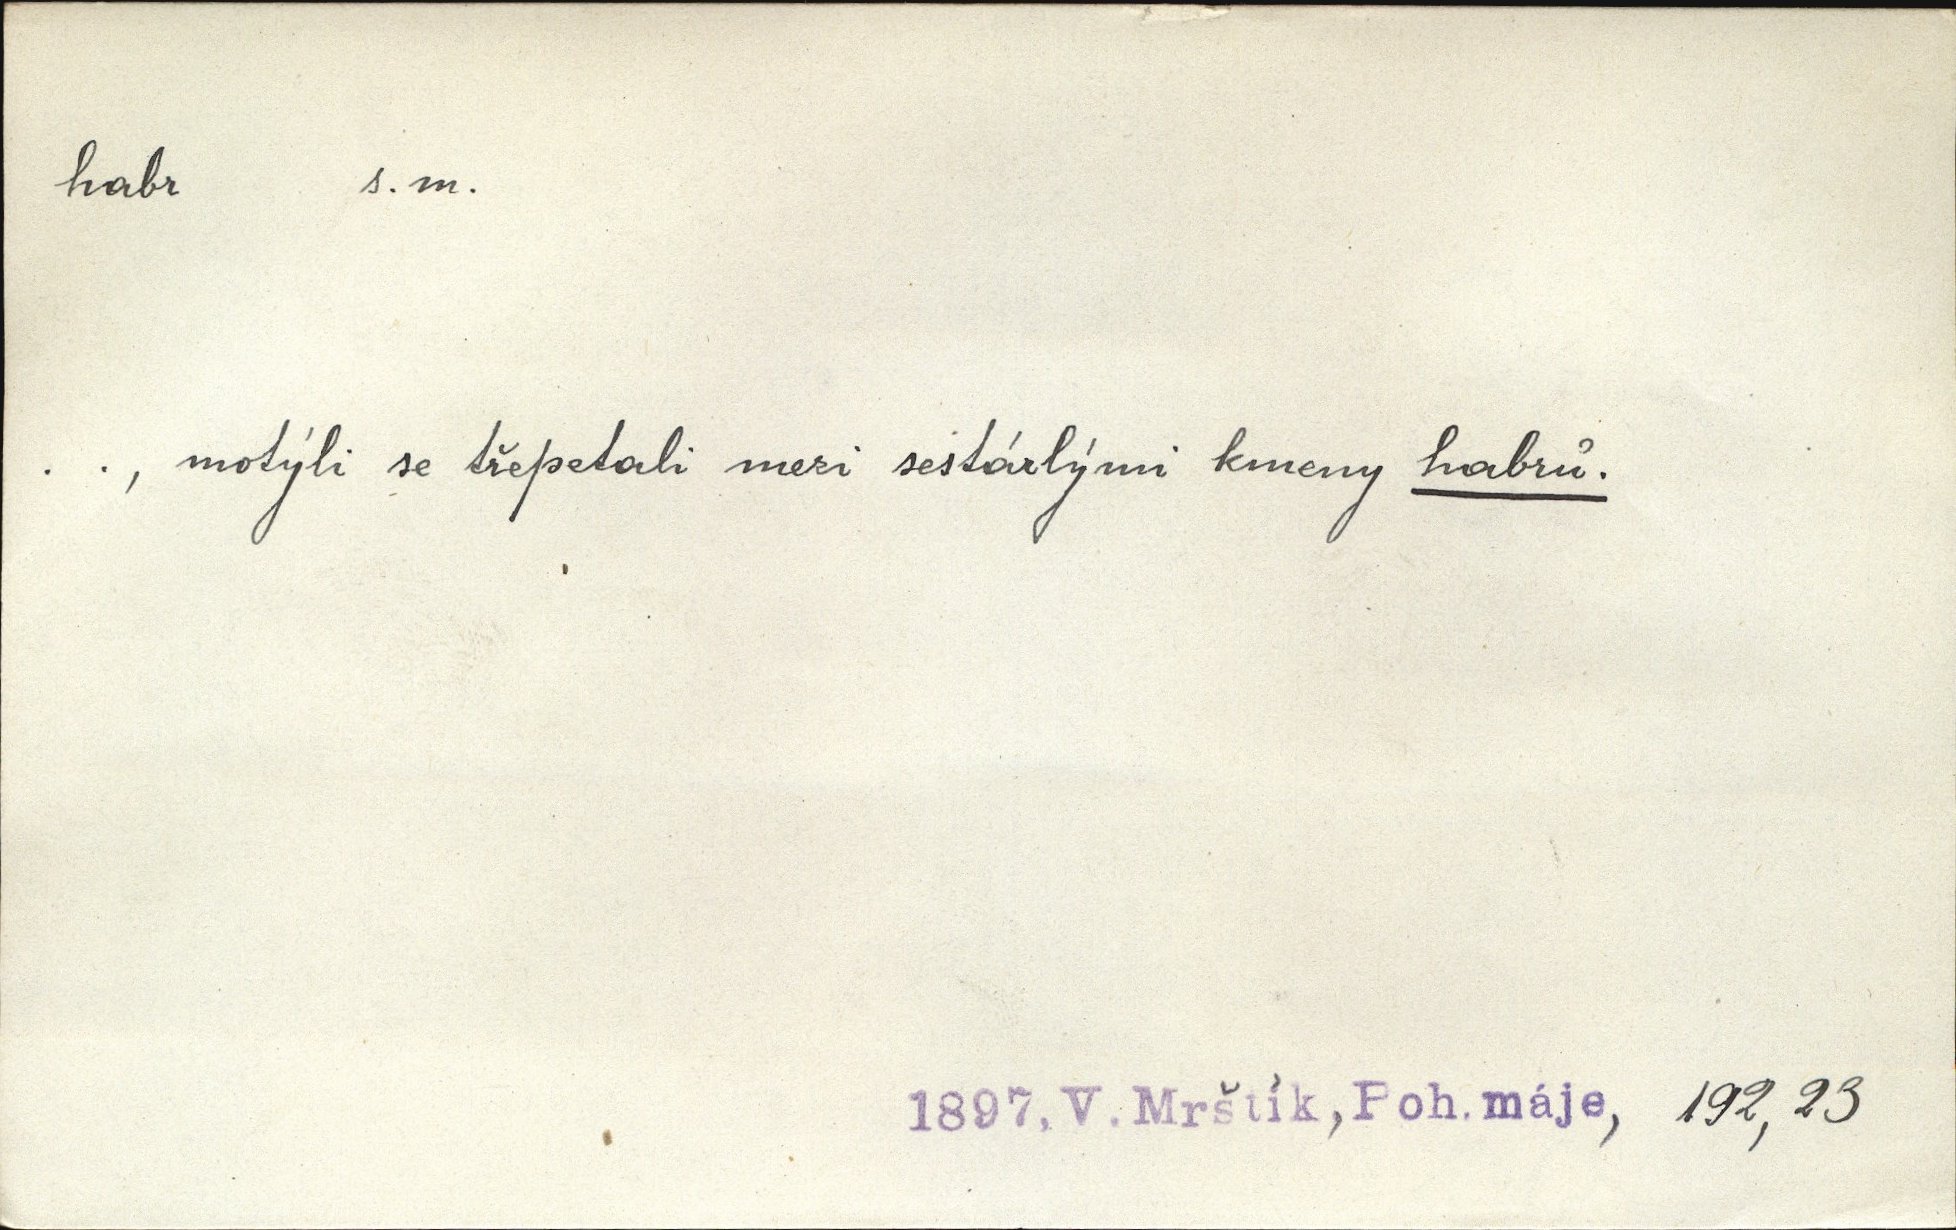 habr s. m.
. . , motýli se třepetali mezi sestárlými kmeny habrů.
1897, V. Mrštík, Poh. máje, 192, 23